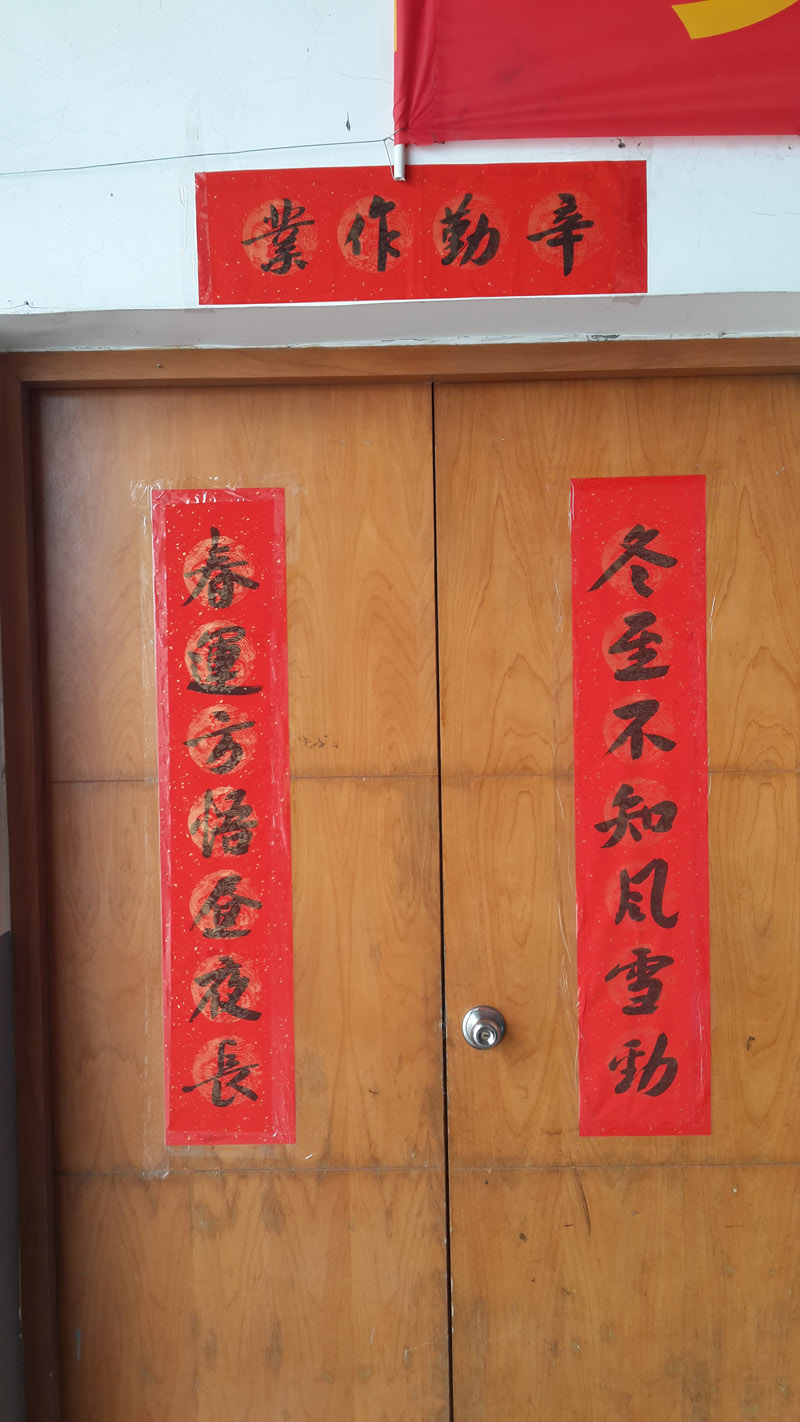 辛勤作業
冬至不知風雪勁
春運方悟昼夜長